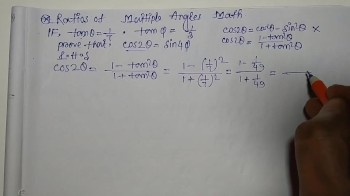 Q1. Ratios of Multiple Angles Math
IF, tanθ = 1/7, tanϕ = 1/3 cos2θ = cos²θ - sin²θ ×
prove that: cos2θ = sin4ϕ cos2θ = 1-tan²θ / 1+tan²θ
L.H.S
cos2θ = 1-tan²θ / 1+tan²θ = 1-(1/7)² / 1+(1/7)² = 1-1/49 / 1+1/49 =